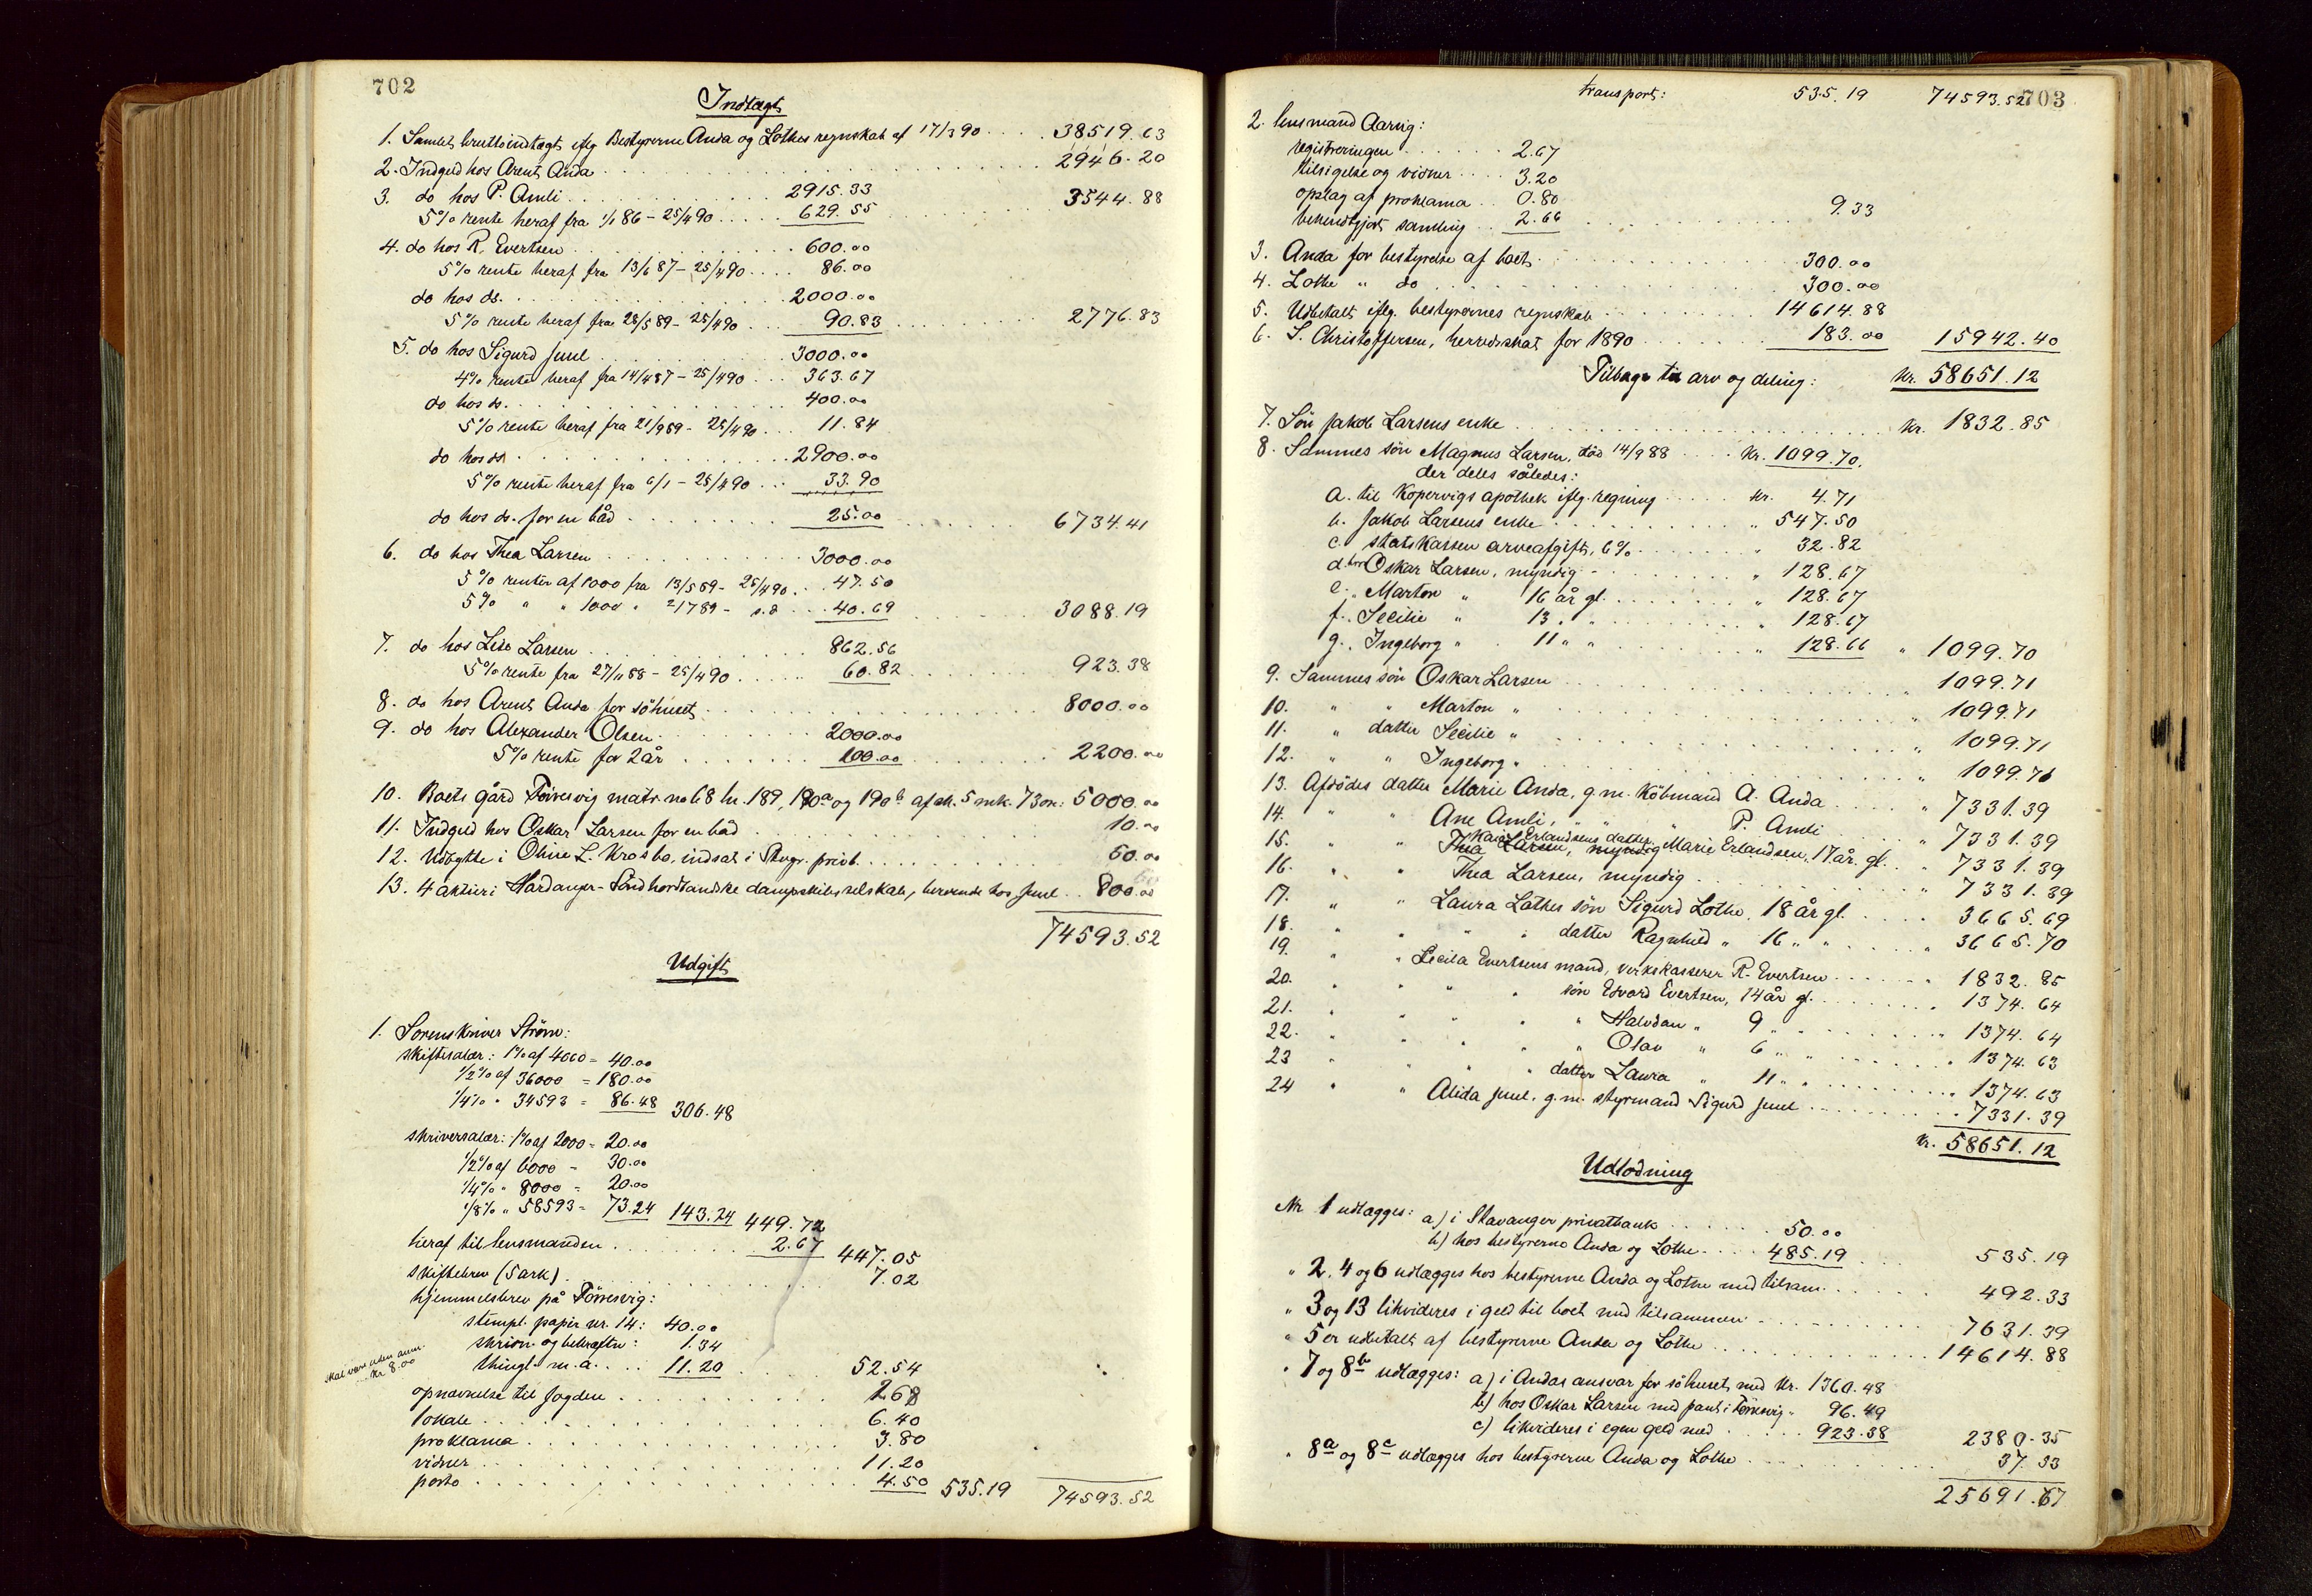 702
Indtægt
1. Samlet bruttoindtægt iflg Bestyrerne Anda og Lothes regnskab af 17/3 90 .... 38519.63
2. Indgjeld hos Arent Anda .... 2946.20
3. do hos P. Amli .... 2915.33
5% rente heraf fra 1/1 86 - 25/4 90 .... 629.55 .... 3544.88
4. do hos R. Evertsen .... 600.00
5% rente heraf fra 13/6 87 - 25/4 90 .... 86.00
do hos ds. .... 2000.00
5% rente heraf fra 28/5 89 - 25/4 90 ... 90.83 .... 2776.83
5. do hos Sigurd Juul .... 3000.00
4% rente heraf fra 14/4 87 - 25/4 90 ... 363.67
do hos ds. .... 400.00
5% rente heraf fra 21/9 89 - 25/4 90 ... 11.84
do hos ds. .... 2900.00
5% rente heraf fra 6/1 - 25/4 90 ... 33.90
do hos ds. for en båd .... 25.00 .... 6734.41
6. do hos Thea Larsen .... 3000.00
5% renter af 1000 fra 13/5 89 - 25/4 90 ... 47.50
5% " " 1000 " 2/7 89 - s.d ... 40.69 .... 3088.19
7. do hos Lise Larsen .... 862.56
5% rente fra 27/11 88 - 25/4 90 .... 60.82 .... 923.38
8. do hos Arent Anda for söhuset .... 8000.00
9. do hos Alexander Olsen .... 2000.00
5% rente for 2 år .... 200.00 .... 2200.00
10. Boets gård Förresvig matr. no 68 br. 189, 190a og 190b af sk. 5 mk. 73 ör: 5000.00
11. Indgjeld hos Oskar Larsen for en båd .... 10.00
12. Udbytte i Oline L. Krosbo, indsat i Stvgr. privb. .... 50.00
13. 4 aktier i Hardanger-Söndhordlandske dampskibsselskab, beroende hos Juul .. 800.00
74593.52
Udgift
1. Sorenskriver Ström:
skiftesalær: 1% af 4000 = 40.00
1/2% af 36000 = 180.00
1/4% " 34593 = 86.48 306.48
skriversalær: 1% af 2000 = 20.00
1/2% af 6000 = 30.00
1/4% " 8000 = 20.00
1/8% " 58593 = 73.24 143.24 449.72
heraf til lensmanden .... 2.67 447.05
skiftebrev (5 ark) .... 7.02
hjemmelsbrev på Förresvig:
stempl. papir kr. 14: 40.00
skrivn. og bekræftn: 1.34
thingl. m.a. .... 11.20 .... 52.54
skal være uden anm.
kr 8.00
opnævnelse til fogden .... 2.68
lokale .... 6.40
proklama .... 3.80
vidner .... 11.20
porto .... 4.50 535.19 74593.52
703
transport: 535.19 74593.52
2. lensmand Aarvig:
registreringen .... 2.67
tilsigelse og vidner .... 3.20
opslag af proklama .. 0.80
bekendtgjort samling .. 2.66 .... 9.33
3. Anda for bestyrelse af boet .... 300.00
4. Lothe " do .... 300.00
5. Udbetalt iflg. bestyrernes regnskab .... 14614.88
6. S. Christoffersen, herredsskat for 1890 .... 183.00 15942.40
Tilbage til arv og deling: kr. 58651.12
7. Sön Jakob Larsens enke .... kr. 1832.85
8. Sammes sön Magnus Larsen, död 14/9 88 .... kr. 1099.70,
der deles således:
a. til Kopervigs apothek iflg. regning .... kr. 4.71
b. Jakob Larsens enke .... " 547.50
c. statskassen arveafgift, 6% .... " 32.82
d. bror Oskar Larsen, myndig .... " 128.67
e. " Marton " 16 år gl. .... " 128.67
f. " Secilie " 13 " " .... " 128.67
g. " Ingeborg " 11 " " .... " 128.66 " 1099.70
9. Sammes sön Oskar Larsen .... 1099.71
10. " " Marton " .... " 1099.71
11. " datter Secilie " .... " 1099.71
12. " " Ingeborg " .... " 1099.71
13. Afdödes datter Marie Anda, g.m. köbmand A. Anda .... " 7331.39
14. " " Ane Amli, " " " P. Amli .... " 7331.39
15. " " Thea Larsen, myndig Karen Erlandsens datter Marie Erlandsen, 17 år gl. .. " 7331.39
16. " " Thea Larsen, myndig .... " 7331.39
17. " " Laura Lothes sön Sigurd Lothe, 18 år gl. .... " 3665.69
18. " " " " datter Ragnhild " 16 " " .... " 3665.70
19. " " Secilia Evertsens mand, verkskasserer R. Evertsen .... " 1832.85
20. " " " " sön Edvard Evertsen, 14 år gl. .... " 1374.64
21. " " " " " Halvdan " 9 " " .... " 1374.64
22. " " " " " Olav " 6 " " .... " 1374.63
23 " " " " datter Laura " 11 " " .... " 1374.63
24 " " Alida Juul, g.m. styrmand Sigurd Juul .... " 7331.39
kr. 58651.12
Udlodning
Nr. 1 udlægges: a) i Stavanger privatbank .... 50.00
b) hos bestyrerne Anda og Lothe .... 485.19 ... 535.19
" 2, 4 og 6 udlægges hos bestyrerne Anda og Lothe med tilsam. .... 492.33
" 3 og 13 likvideres i geld til boet med tilsammen .... 7631.39
" 5 er udbetalt af bestyrerne Anda og Lothe .... 14614.88
" 7 og 8b udlægges: a) i Andas ansvar for söhuset med kr. 1360.48
b) hos Oskar Larsen med pant i Förresvig " 96.49
c) likvideres i egen geld med .... 923.38 2380.35
" 8a og 8c udlægges hos bestyrerne Anda og Lothe .... 37.53
25691.67